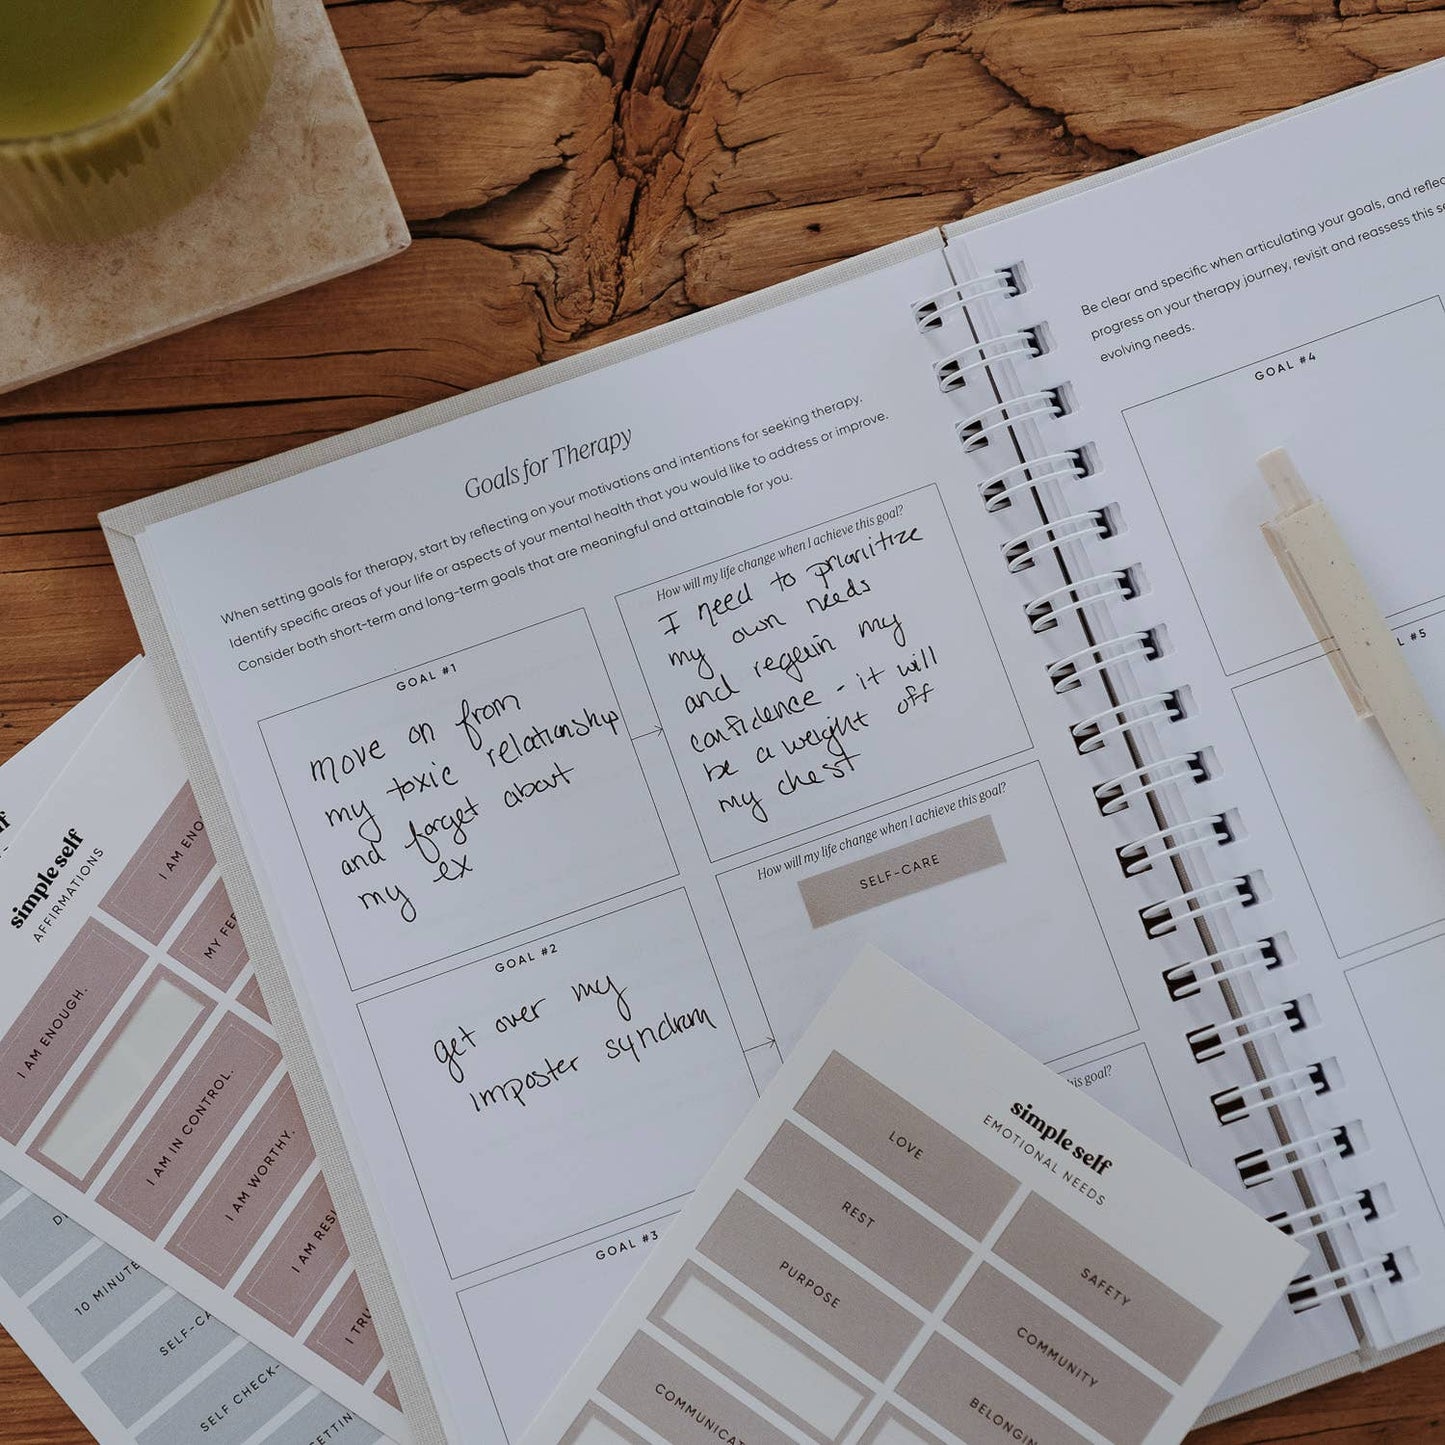 Goals for Therapy
When setting goals for therapy, start by reflecting on your motivations and intentions for seeking therapy.
Identify specific areas of your life or aspects of your mental health that you would like to address or improve.
Consider both short-term and long-term goals that are meaningful and attainable for you.
GOAL #1
move on from
my toxic relationship
and forget about
my ex
How will my life change when I achieve this goal?
I need to prioritize
my own needs
and regain my
confidence - it will
be a weight off
my chest
GOAL #2
get over my
imposter syndrom
How will my life change when I achieve this goal?
SELF-CARE
GOAL #3
his goal?
Be clear and specific when articulating your goals, and reflec
progress on your therapy journey, revisit and reassess this se
evolving needs.
GOAL #4
#5
simple self
AFFIRMATIONS
I AM ENO
MY FEE
I AM ENOUGH.
I AM IN CONTROL.
I AM WORTHY.
I AM RESI
I TRU
10 MINUTE
SELF-CA
SELF CHECK-
SETTIN
simple self
EMOTIONAL NEEDS
LOVE
REST
PURPOSE
COMMUNICAT
SAFETY
COMMUNITY
BELONGIN